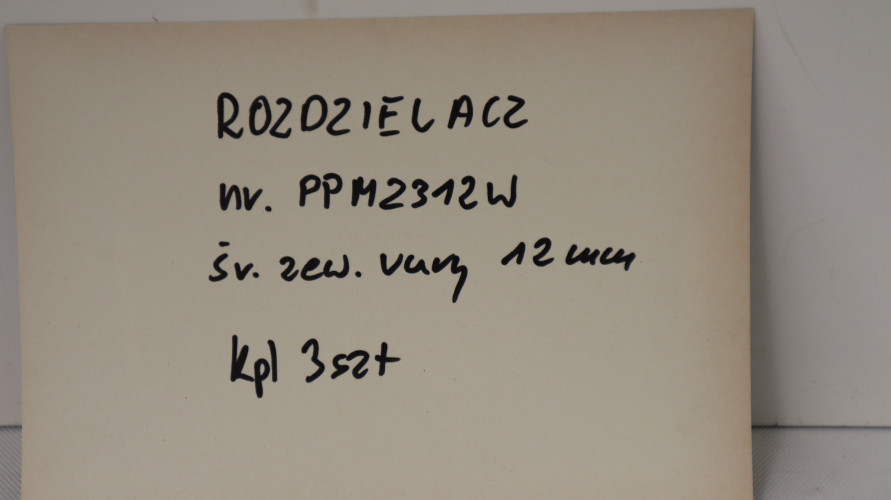 ROZDZIELACZ
nr. PPM2312W
śr. zew. rury 12 mm
kpl 3 szt